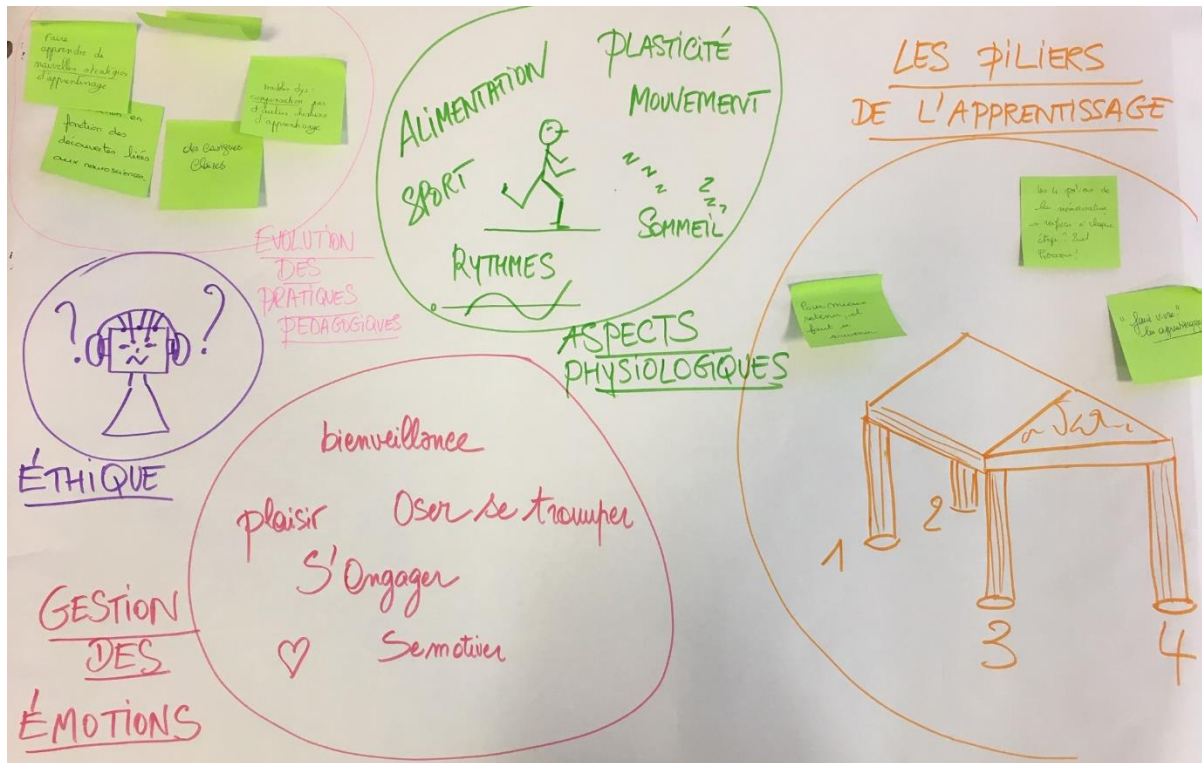 Faire
apprendre de
nouvelles stratégies
d'apprentissage
en
fonction des
découvertes liés
aux neurosciences.
des consignes
claires
troubles dys :
compensation par
d'autres chemins
d'apprentissage
EVOLUTION
DES
PRATIQUES
PEDAGOGIQUES
ALIMENTATION
PLASTICITÉ
MOUVEMENT
SPORT
z z z z
z z z
SOMMEIL
RYTHMES
ASPECTS
PHYSIOLOGIQUES
LES PILIERS
DE L'APPRENTISSAGE
Les 4 piliers de
la mémorisation
à chaque
étape ?
Pour mieux
retenir, il
faut se
"faire vivre"
les apprentissages
1
2
3
4
? ?
ÉTHIQUE
bienveillance
plaisir
Oser se tromper
S'Engager
Se motiver
GESTION
DES
ÉMOTIONS